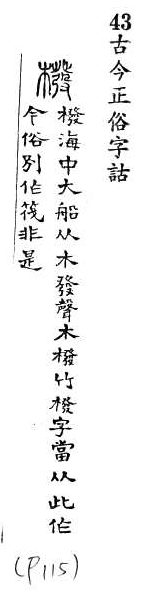 43古今正俗字詁
橃
橃海中大船从木發聲木橃竹橃字當从此作
今俗別作筏非是
(P115)